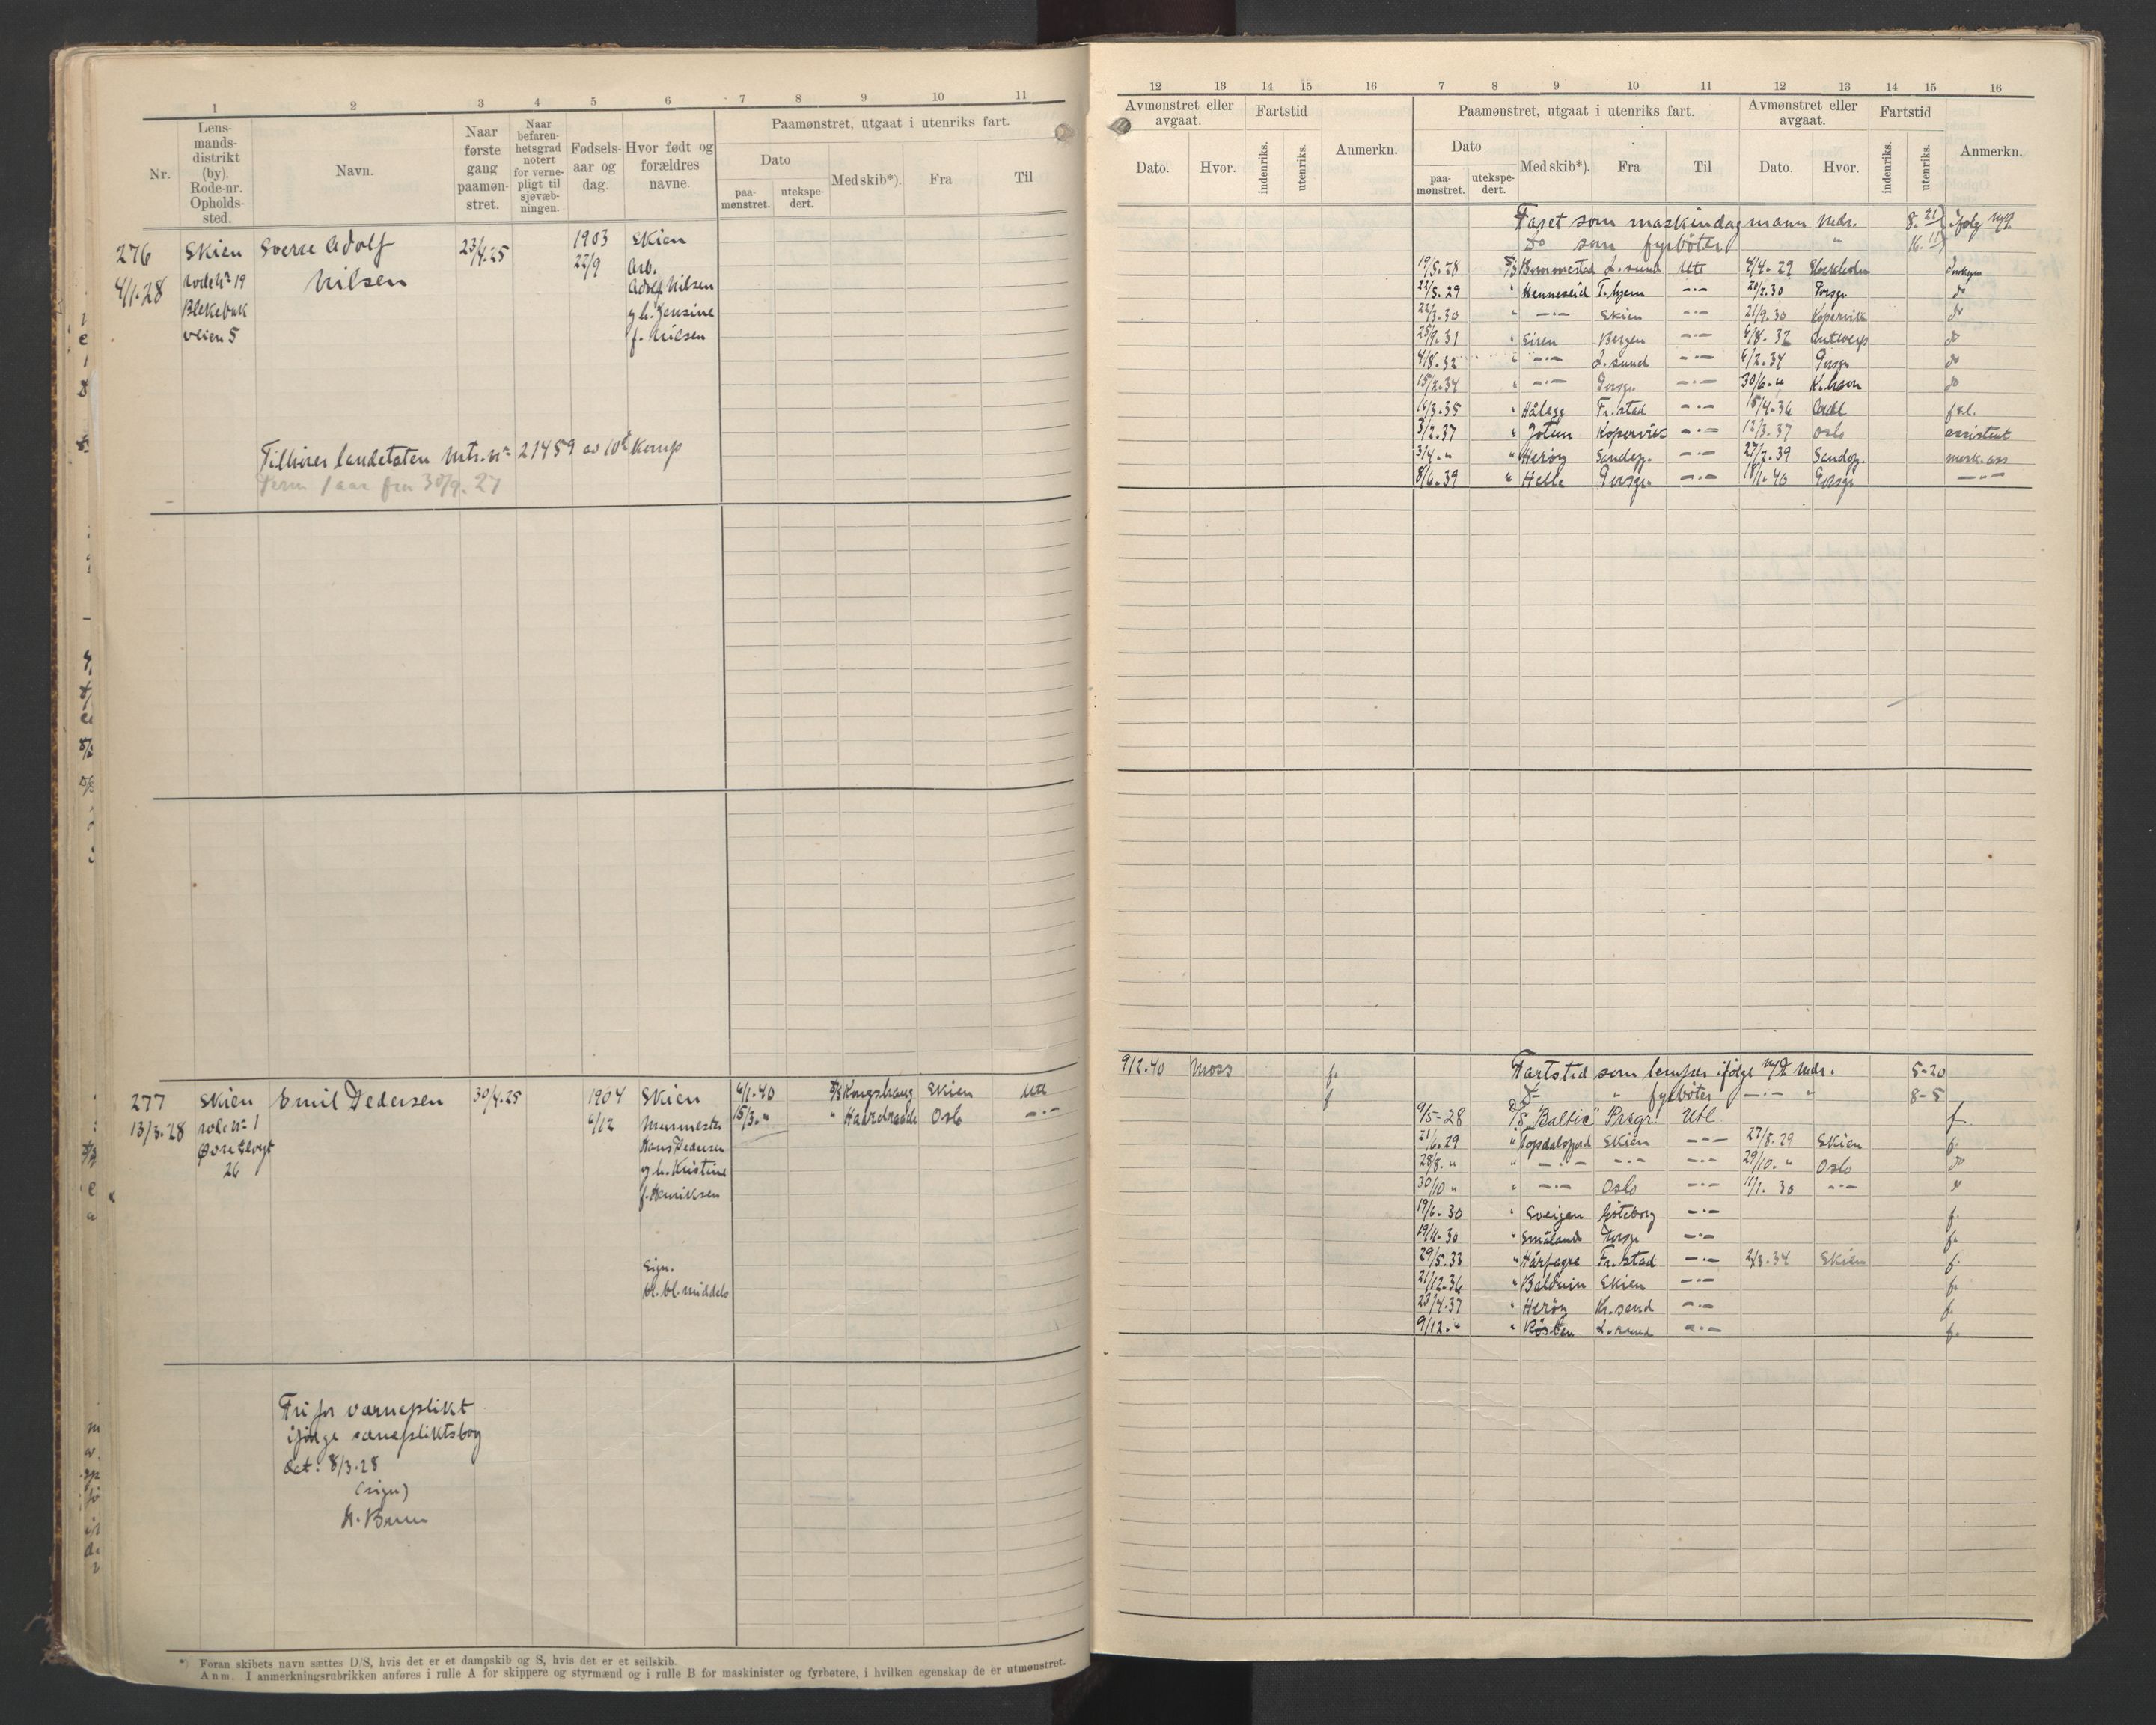 1 2 3 4 5 6 7 8 9 10 11
Nr.
Lens-
mands-
distrikt
(by).
Rode-nr.
Opholds-
sted.
Navn.
Naar
første
gang
paamøn-
stret.
Naar
befaren-
hetsgrad
notert
for verne-
pligt til
sjøvæb-
ningen.
Fødsels-
aar og
dag.
Hvor født og
forældres
navne.
Paamønstret, utgaat i utenriks fart.
Dato
paa-
mønstret.
utekspe-
dert.
Med skib*).
Fra
Til
276 Skien Sverre Adolf 23/4.25 1903 Skien
4/1.28 rode nr 19 Nilsen 22/9 Arb.
Adolf Nilsen
Blekebak g.h. Jensine
veien 5 f. Nilsen
Tilhører landetaten Mtr. nr 21459 av 10d Komp
Perm 1 aar fra 30/9.27
277 Skien Emil Pedersen 30/4.25 1904 Skien 6/1.40 D/S Kongshaug Skien Utl
13/3.28 rode nr 1 6/12 Murmester 15/3. " " Haardraade Oslo -"-
Øvre Elvegt Hans Pedersen
26 g.h. Kristine
f. Henriksen
Sign.
bl. bl. middels
Fri for værneplikt
ifølge værnepliktsbog
dat: 8/3.28
(sign)
H. Bruun
*) Foran skibets navn sættes D/S, hvis det er et dampskib og S, hvis det er et seilskib.
Anm. I anmerkningsrubrikken anføres i rulle A for skippere og styrmænd og i rulle B for maskinister og fyrbøtere, i hvilken egenskap de er utmønstret.
12 13 14 15 16 7 8 9 10 11 12 13 14 15 16
Avmønstret eller
avgaat.
Dato.
Hvor.
Fartstid
indenriks.
utenriks.
Anmerkn.
Paamønstret, utgaat i utenriks fart.
Dato
paa-
mønstret.
utekspe-
dert.
Med skib*).
Fra
Til
Avmønstret eller
avgaat.
Dato.
Hvor.
Fartstid
indenriks.
utenriks.
Anmerkn.
Faret som maskindagmann Mdr. 8. 21
do som fyrbøter " 16. 11
19/5.28 D/S Bommestad L.sund Utl 4/4.29 Stockholm
22/5.29 " Henneseid T.hjem -"- 20/2.30 Porsgr do
22/3.30 " -"- Skien -"- 21/9.30 Kopervik do
25/9.31 " Siren Bergen -"- 6/8.32 Antwerp do
4/8.32 " -"- L.sund -"- 6/2.34 Porsgr do
15/2.34 " -"- Porsgr -"- 30/6. " K.havn do
16/3.35 " Hålegg Fr.stad -"- 15/4.36
3/2.37 " Jotun Kopervik -"- 12/3.37 Oslo assistent
3/4. " " Herøy Sandefj. -"- 27/2.39 Sandefj. mask.ass
8/6.39 " Helle Porsgr. -"- 18/1.40 Porsgr -"-
9/2.40 Moss f. Fartstid som lemper ifølge Mdr. 5-20
f do " fyrbøter -"- " 8-5
9/5-28 D/S "Baltic" Porsgr. Utl f
21/6.29 " Topdalsfjord Skien -"- 27/8.29 Skien f.
28/8. " " -"- -"- -"- 29/10. " Oslo do
30/10 " " -"- Oslo -"- 11/1.30 -"- do
19/6.30 " Sveigen Göteborg -"- f.
19/11.30 " Småland Porsgr -"- f.
29/5.33 " Hårfagre Fr.stad -"- 2/3.34 Skien f.
21/12.36 " Balduin Skien -"- f.
23/4.37 " Herøy Kr.sand -"- f.
9/12. " " Røsten L.sund -"- f.